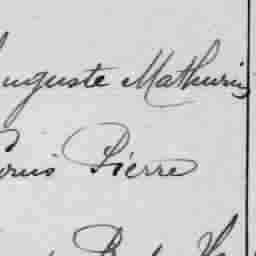 Auguste Mathurin
Louis Pierre